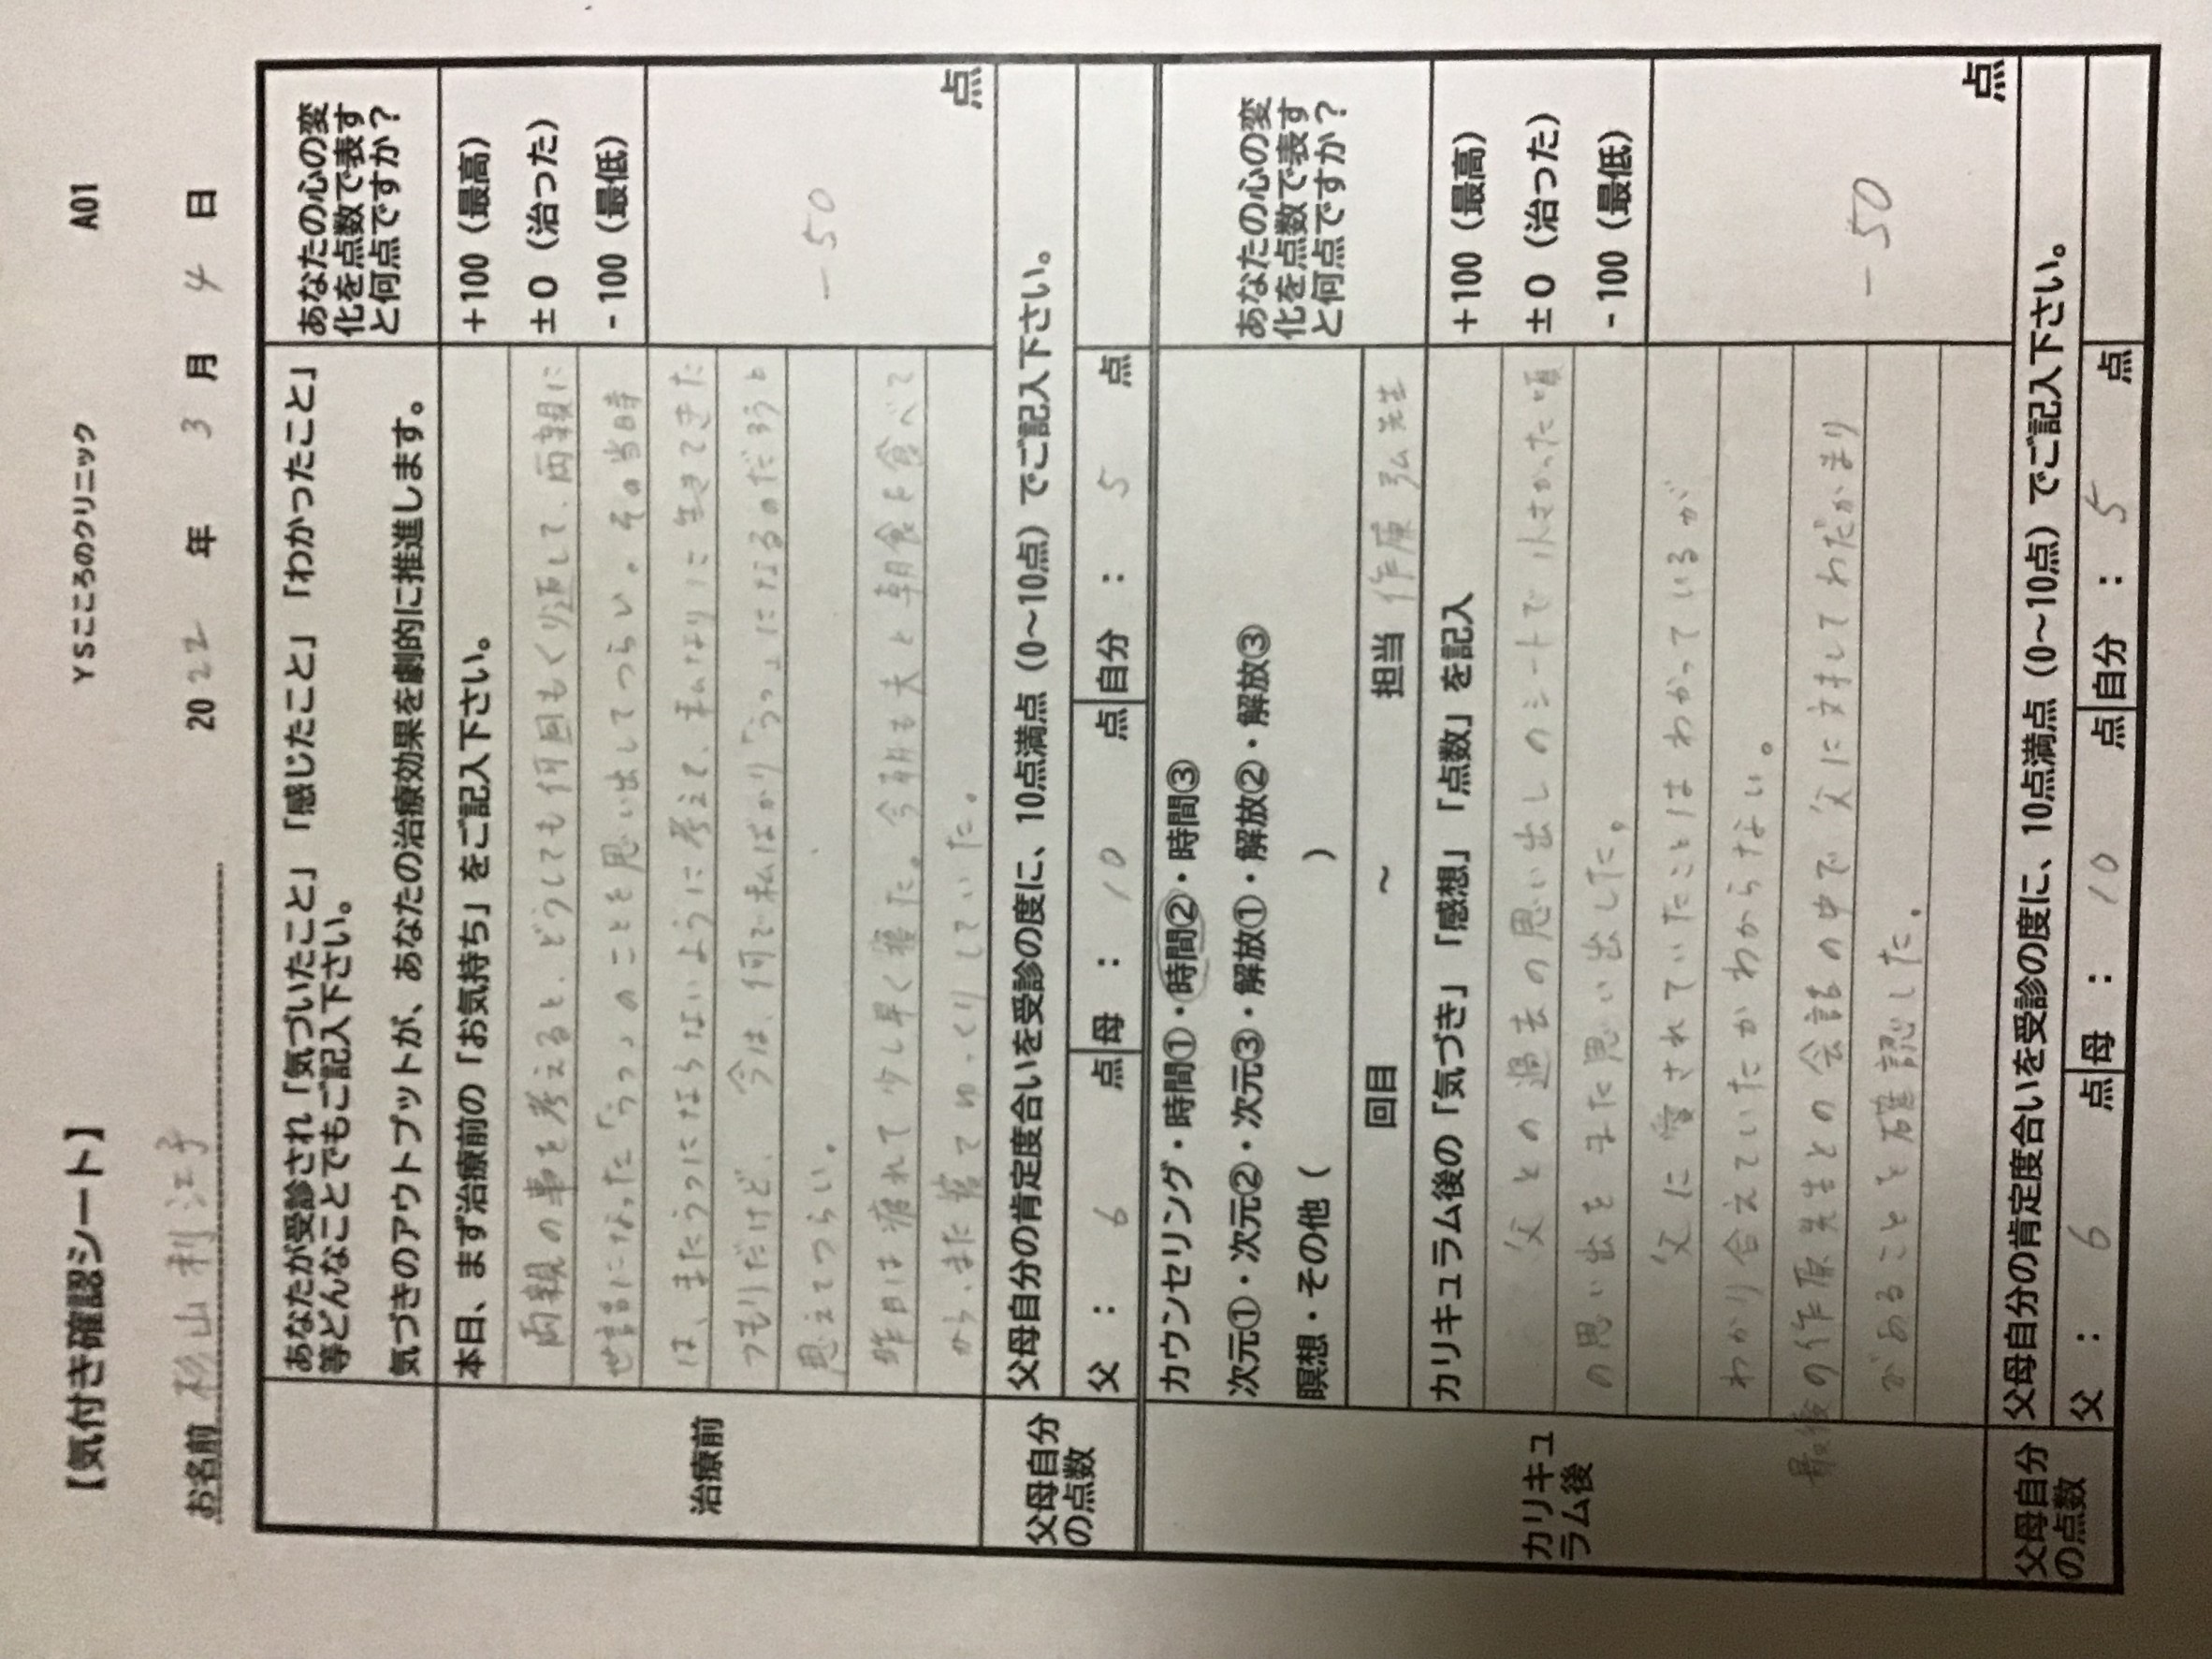 【気付き確認シート】 YSこころのクリニック A01
お名前 杉山利江子 2022年 3月 4日
あなたが受診され「気づいたこと」「感じたこと」「わかったこと」
等どんなことでもご記入下さい。
気づきのアウトプットが、あなたの治療効果を劇的に推進します。
あなたの心の変
化を点数で表す
と何点ですか?
治療前
本日、まず治療前の「お気持ち」をご記入下さい。
+100(最高)
±0(治った)
-100(最低)
両親の事を考えると、どうしても何回もくり返して、両親に
世話になった「うつ」のことを思い出してつらい。その当時
は、またうつにならないように考えて、私なりに生きてきた
つもりだけど、今は、何で私ばかり「うつ」になるのだろうと
思えてつらい。
昨日は疲れて少し早く寝た。今朝も夫と朝食を食べて
から、また
ゆっくりしていた。
-50 点
父母自分
の点数
父母自分の肯定度合いを受診の度に、10点満点(0~10点)でご記入下さい。
父 : 6 点 母 : 10 点 自分 : 5 点
カリキュ
ラム後
カウンセリング・時間①・時間②・時間③
次元①・次元②・次元③・解放①・解放②・解放③
瞑想・その他( )
あなたの心の変
化を点数で表す
と何点ですか?
回目 ~ 担当 作原 弘 先生
カリキュラム後の「気づき」「感想」「点数」を記入
+100(最高)
±0(治った)
-100(最低)
父との過去の思い出しのシートで小さかった頃
の思い出をまた思い出した。
父に愛されていたことはわかっているが
わかり合えていたかわからない。
最後の作原先生との会話の中で父に対してわだかまり
があることを確認した。
-50 点
父母自分
の点数
父母自分の肯定度合いを受診の度に、10点満点(0~10点)でご記入下さい。
父 : 6 点 母 : 10 点 自分 : 5 点